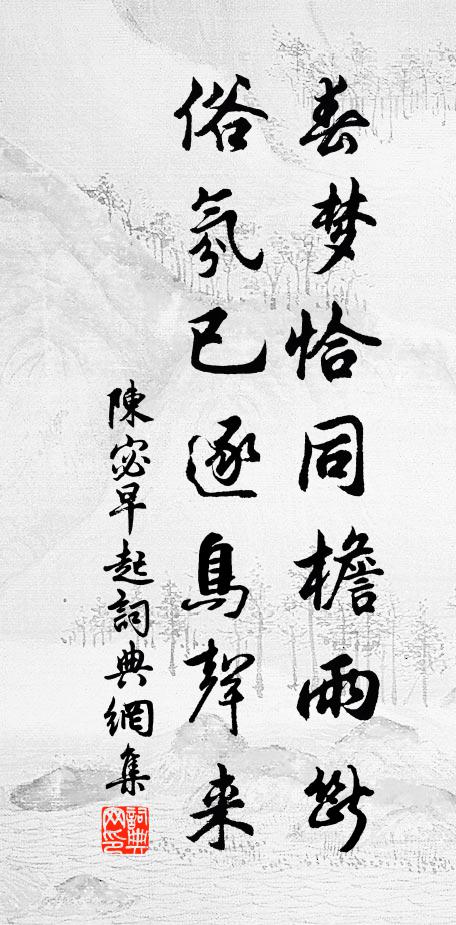 春梦恰同檐雨断
俗氛已逐鳥聲来
陳宓早起詞典網集
詞典網印